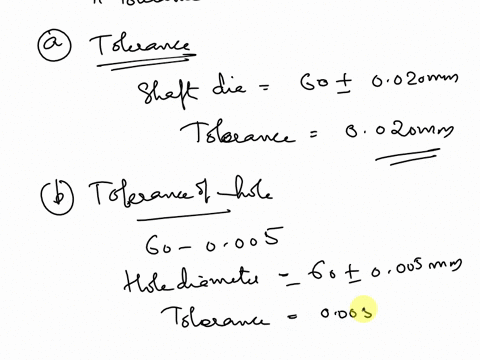 ⓐ Tolerance
Shaft die = 60 ± 0.020mm
Tolerance = 0.020mm
ⓑ Tolerance of hole
60 - 0.005
Hole diameter = 60 ± 0.005 mm
Tolerance = 0.005